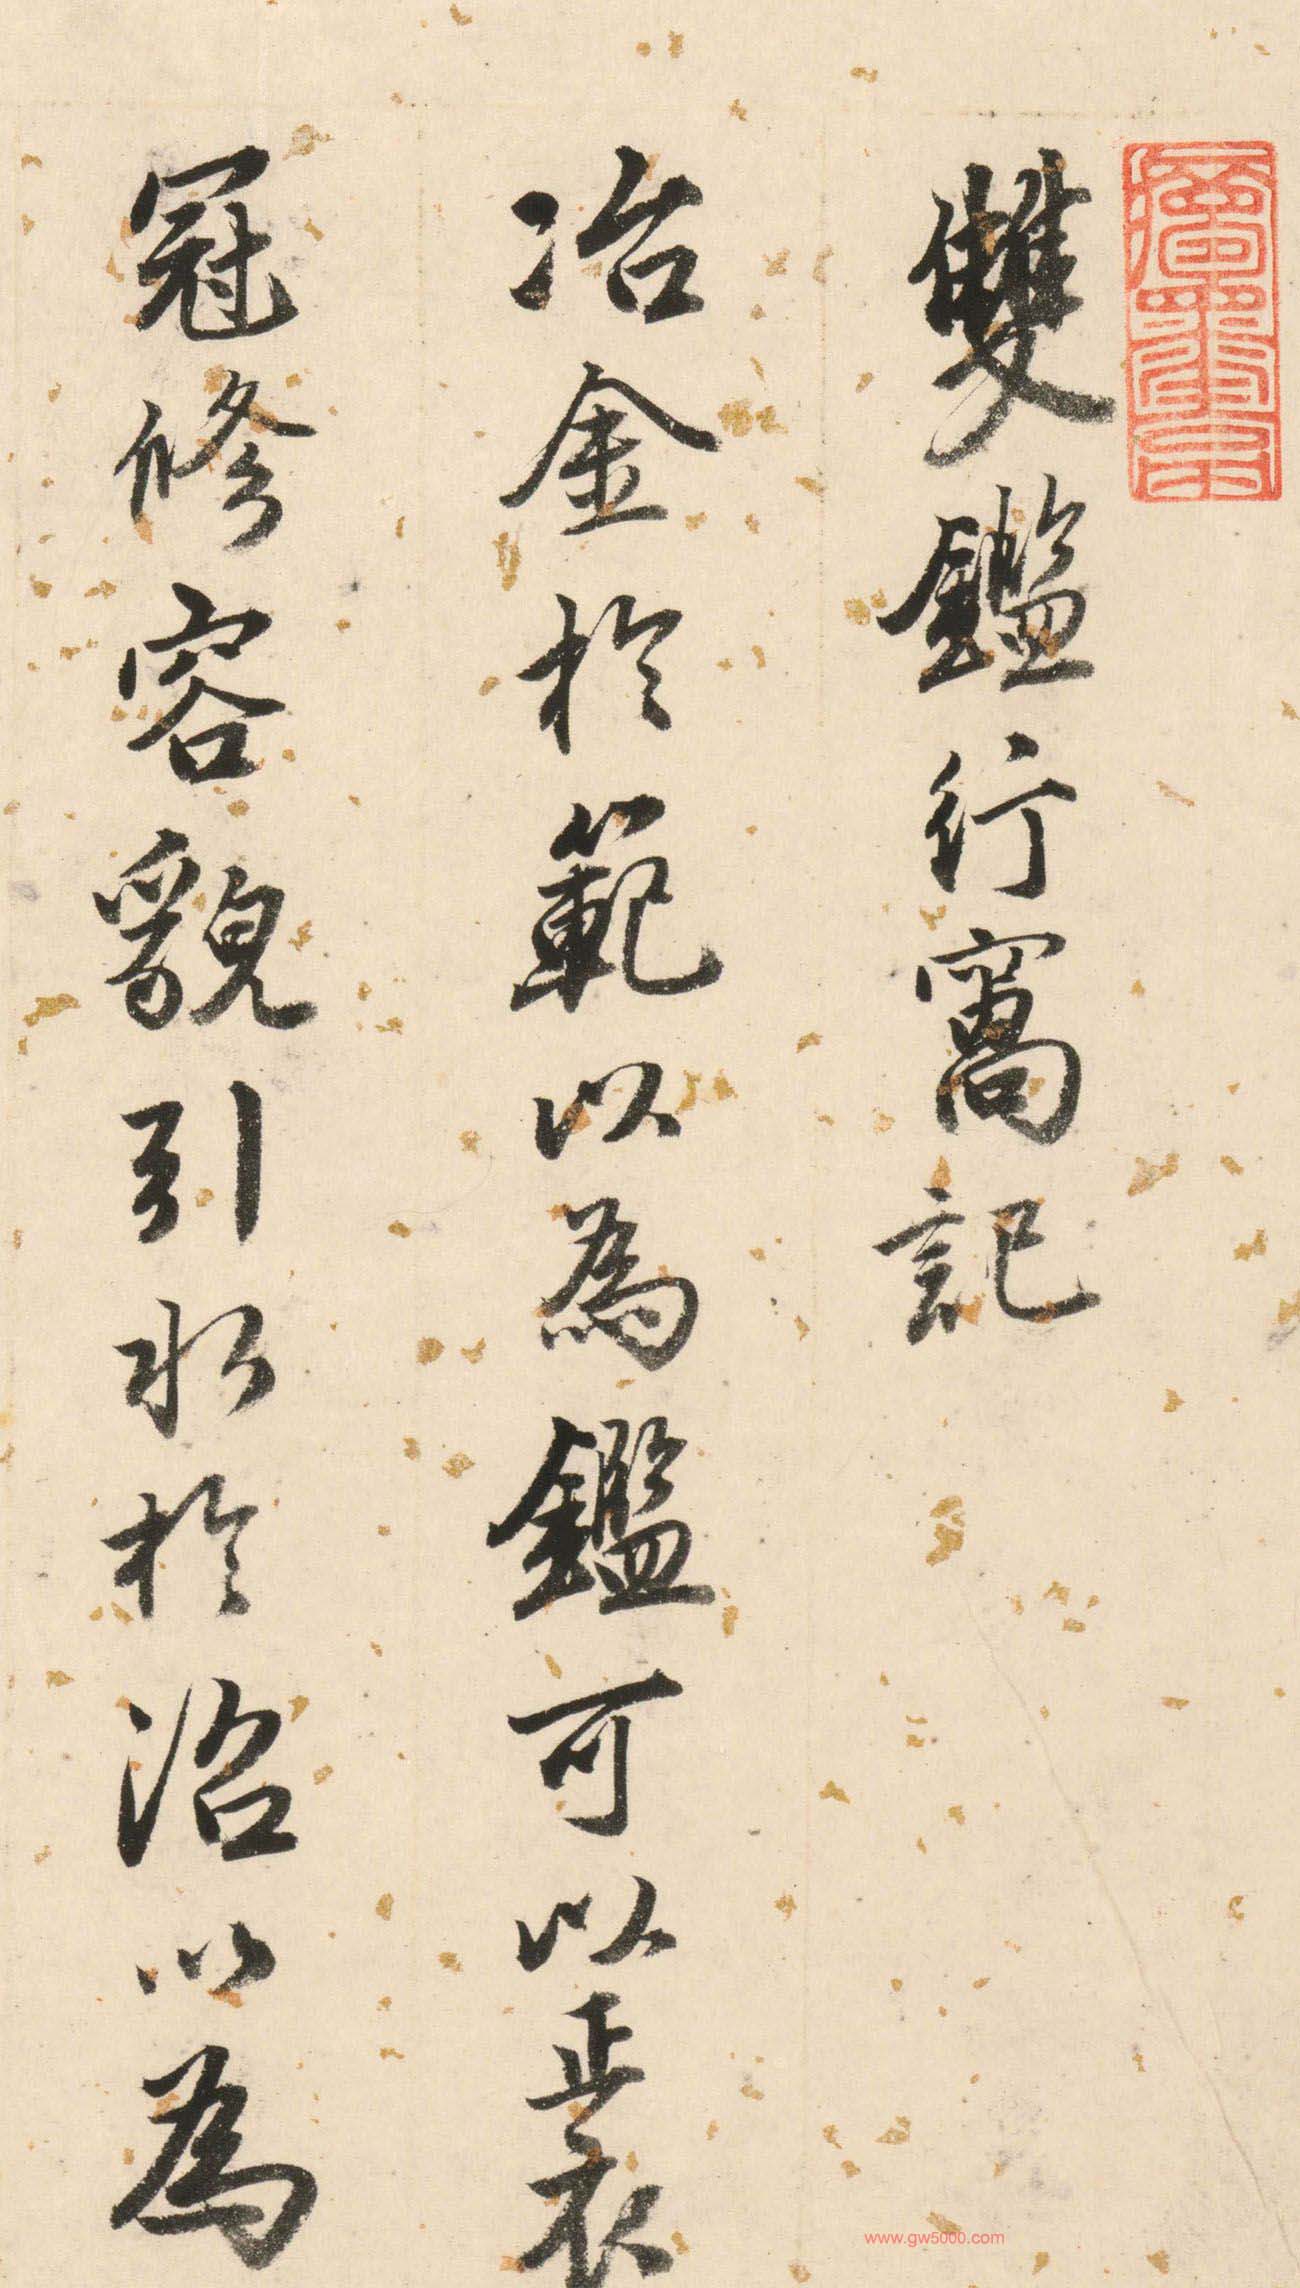 雙鑑行窩記
冶金於範以為鑑可以正衣
冠修容貌引水於沼以為
www.gw5000.com